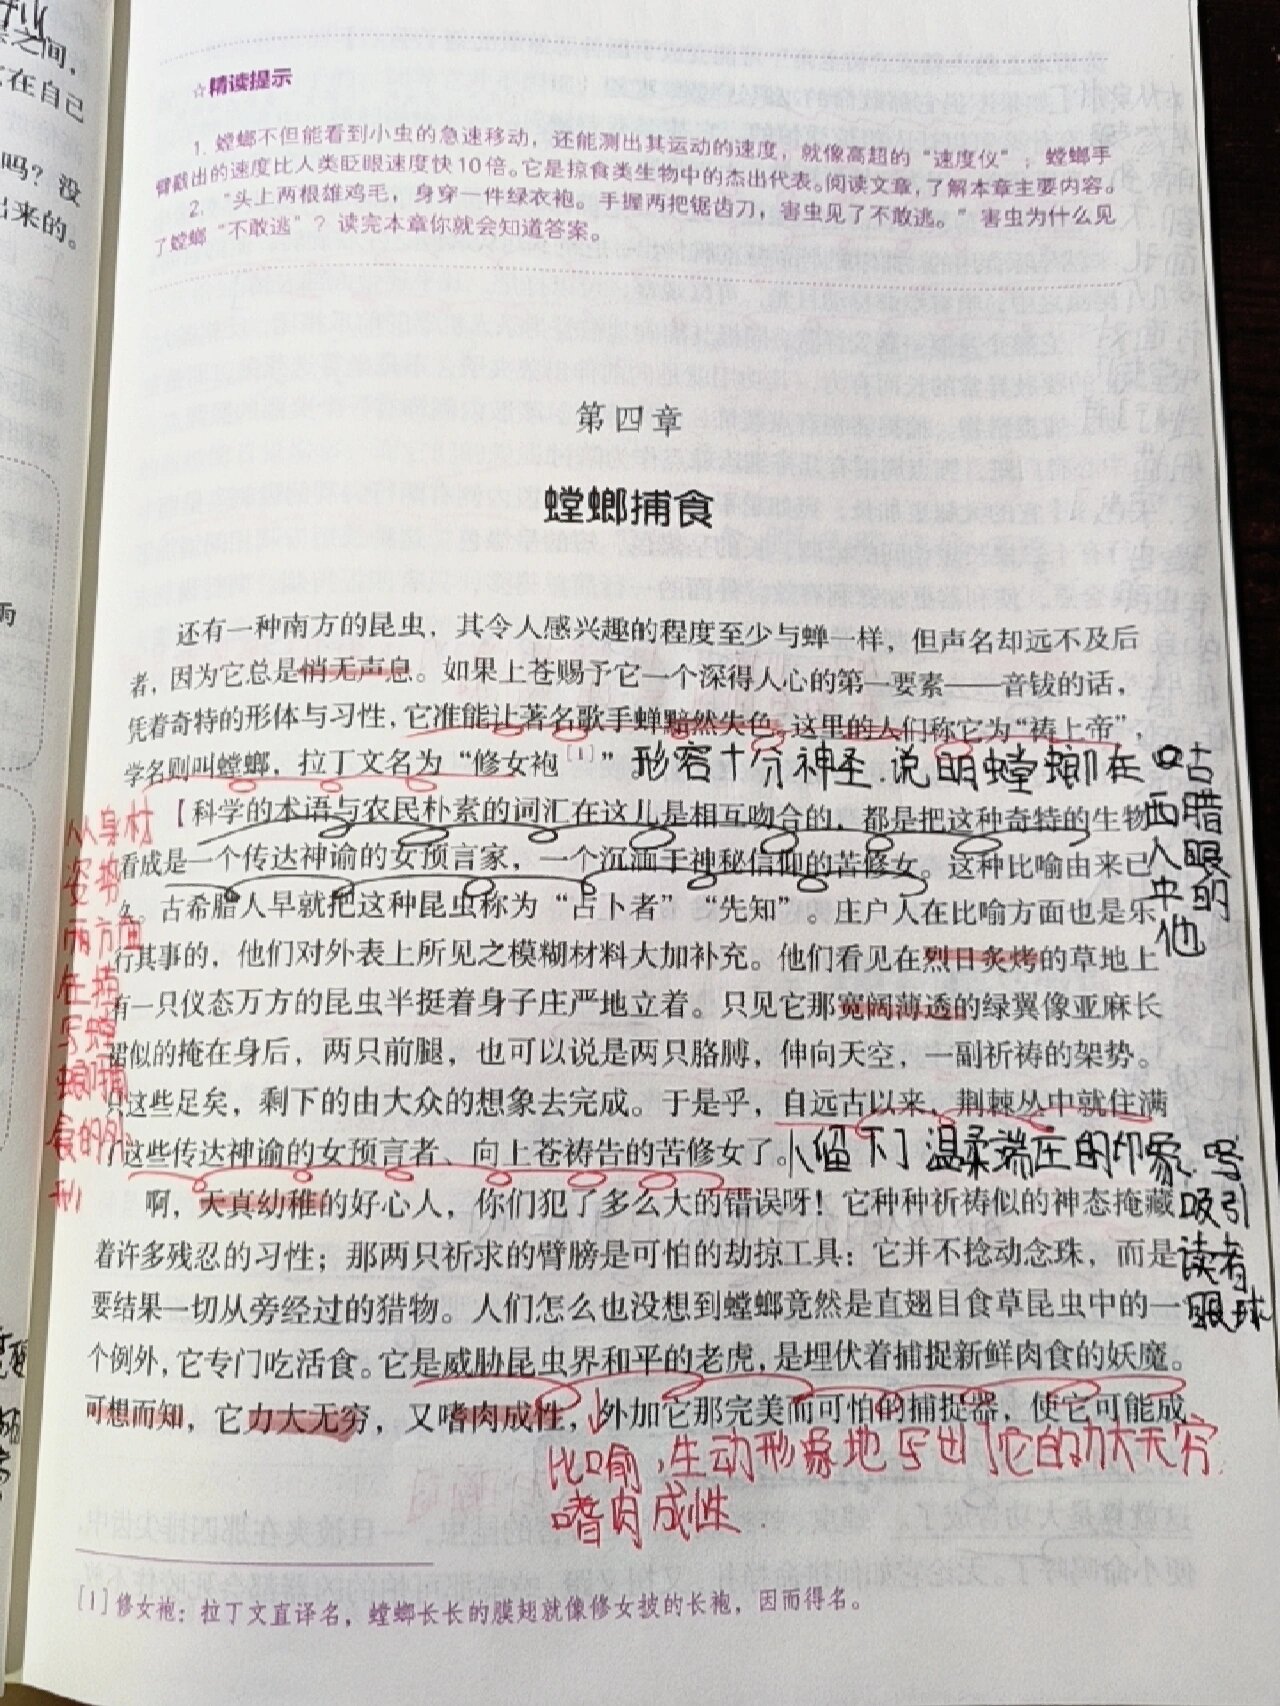 之间，
在自己
吗？没
出来的。
☆精读提示
1. 螳螂不但能看到小虫的急速移动，还能测出其运动的速度，就像高超的“速度仪”；螳螂手
臂戳出的速度比人类眨眼速度快10倍。它是掠食类生物中的杰出代表。阅读文章，了解本章主要内容。
2. “头上两根雄鸡毛，身穿一件绿衣袍。手握两把锯齿刀，害虫见了不敢逃。”害虫为什么见
了螳螂“不敢逃”？读完本章你就会知道答案。
第四章
螳螂捕食
还有一种南方的昆虫，其令人感兴趣的程度至少与蝉一样，但声名却远不及后
者，因为它总是悄无声息。如果上苍赐予它一个深得人心的第一要素——音钹的话，
凭着奇特的形体与习性，它准能让著名歌手蝉黯然失色。这里的人们称它为“祷上帝”，
学名则叫螳螂，拉丁文名为“修女袍[1]”
形容十分神圣.说明螳螂在
古腊
西眼
人的
中他
【科学的术语与农民朴素的词汇在这儿是相互吻合的，都是把这种奇特的生物
看成是一个传达神谕的女预言家，一个沉湎于神秘信仰的苦修女。这种比喻由来已
久。古希腊人早就把这种昆虫称为“占卜者”“先知”。庄户人在比喻方面也是乐
行其事的，他们对外表上所见之模糊材料大加补充。他们看见在烈日炙烤的草地上
有一只仪态万方的昆虫半挺着身子庄严地立着。只见它那宽阔薄透的绿翼像亚麻长
裙似的掩在身后，两只前腿，也可以说是两只胳膊，伸向天空，一副祈祷的架势。
只这些足矣，剩下的由大众的想象去完成。于是乎，自远古以来，荆棘丛中就住满
了这些传达神谕的女预言者、向上苍祷告的苦修女了。
从身材
姿势
两方面
在描
写螳
螂捕
食的外
形
留下了温柔端庄的印象，
吸引
读者
眼球
啊，天真幼稚的好心人，你们犯了多么大的错误呀！它种种祈祷似的神态掩藏
着许多残忍的习性；那两只祈求的臂膀是可怕的劫掠工具：它并不捻动念珠，而是
要结果一切从旁经过的猎物。人们怎么也没想到螳螂竟然是直翅目食草昆虫中的一
个例外，它专门吃活食。它是威胁昆虫界和平的老虎，是埋伏着捕捉新鲜肉食的妖魔。
可想而知，它力大无穷，又嗜肉成性，外加它那完美而可怕的捕捉器，使它可能成
比喻，生动形象地写出了它的力大无穷，
嗜肉成性.
[1]修女袍：拉丁文直译名，螳螂长长的膜翅就像修女披的长袍，因而得名。